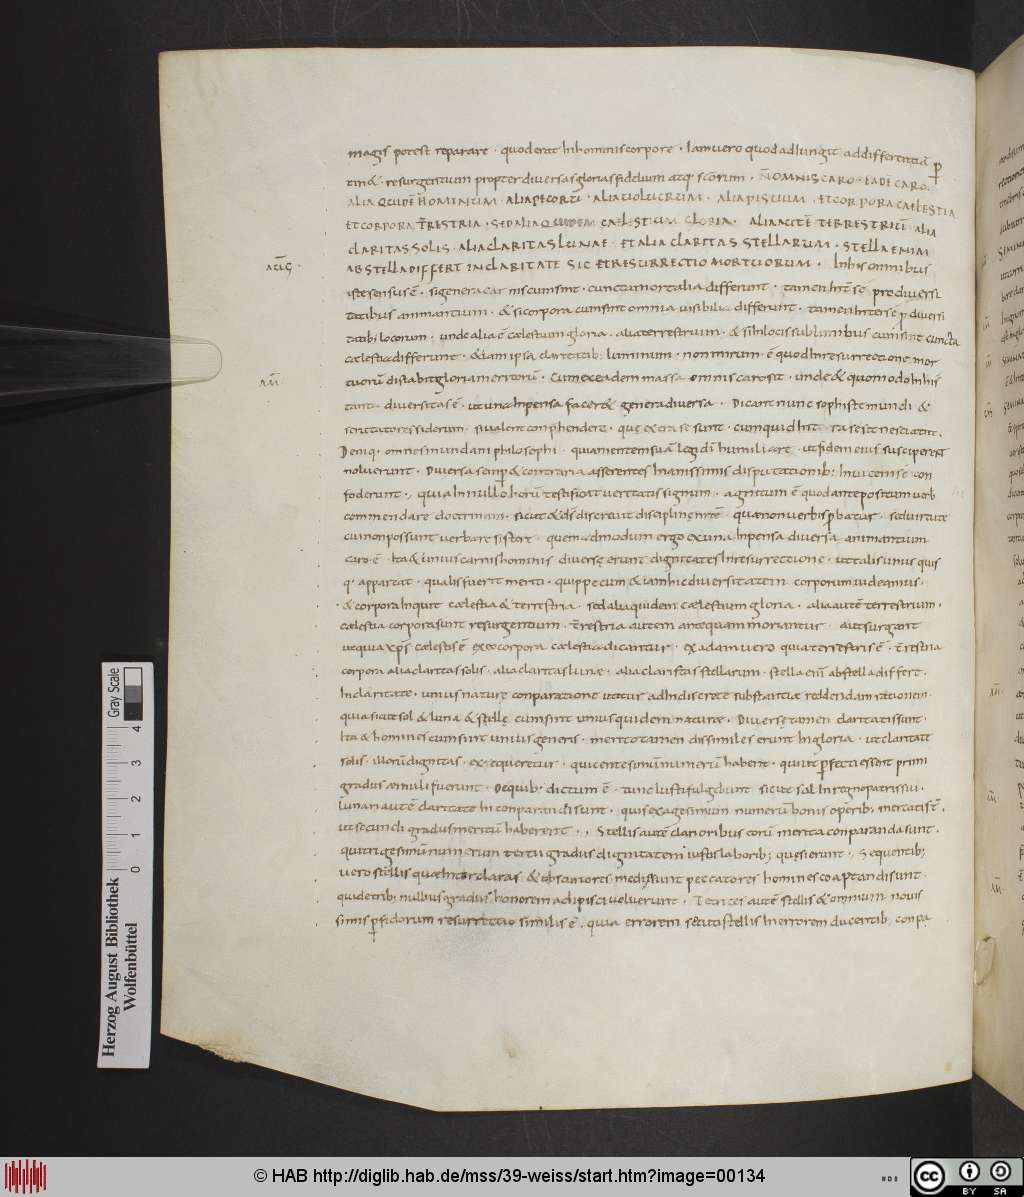 magis potest reparare · quod erat hi hominis corpore · Iam vero quod adiungit ad differentiā p
tin& · resurgentium propter diversas glorias fidelium atq· scōrum · Ñ OMNIS CARO · EADĒ CARO ·
ALIA QUIDĒ HOMINUM · ALIA PECORU · ALIA VOLUCRUM · ALIA PISCIUM · ET CORPORA CAELESTIA
ET CORPORA TRESTRIA · SED ALIA QUIDEM CAELESTIUM GLORIA · ALIA AUTĒ TERRESTRIŪ · ALIA
CLARITAS SOLIS · ALIA CLARITAS LUNAE · ET ALIA CLARITAS STELLARUM · STELLA ENIM
AB STELLA DIFFERT IN CLARITATE SIC ET RESURRECTIO MORTUORUM · In his omnibus
iste sensus ē · si genera carnis cum sint · cuncta mortalia differunt · tamen Int̄ se pro diversi
tatibus animantium · & si corpora cum sint omnia visibilia differunt · tamen Inter se p diversi
tatib; locorum · unde alia ē caelestium gloria · alia terrestrium · & si In locis sublimibus cum sint cuncta
caelestia differunt · & iam ipsa claritatib; luminum · non mirum ē quod In resurrectione mor
tuorū distabit gloria meritorū · Cum ex eadem massa omnis caro sit · unde & quomodo In his
tanta diversitas ē · ut una Inpensa facer& genera diversa · Dicant nunc sophiste mundi &
scrutatores siderum · si valent conprhendere · quę extra se sunt · cum quid Int̄ra se sit nesciant ·
Deniq· omnes mundani philosophi · quia mentem suā legi dī humiliare · ut fidem eius susciperent
noluerunt · Diversa semp & contraria asserentes Inanissimis disputationib; Invicem se con
foderunt · quia In nullo horū testificat veritatis signum · agnitum ē quod ante positum verb
commendare doctrinam · sicut & dī disereret disciplinę mtē · quae non verbis pbatur · sed virtute
cui non possunt verba resistere · quem admodum ergo ex una Inpensa diversa animantium
caro ē · Ita & unius carnis hominis diversę erunt dignitates In resurrectione · ut talis unus quis
q· appareat · qualis fuerit meriti · quippe cum & iam hic diversitatem corporum videamus ·
· & corpora Inquit caelestia & terrestria · sed alia quidem caelestium gloria · alia autē terrestrium ·
caelestia corpora sunt resurgentium · t̄restria autem antequam moriantur · aut surgant
ut e quia xp̄s caelestis ē ex eo corpora caelestia dicantur · ex adam vero quia terrestris ē · t̄restria
corpora alia claritas solis · alia claritas lunae · alia claritas stellarum · stella enī ab stella differt ·
In claritate · unius naturę conparatione utitur ad Indiscrete substantiae reddendam rationem ·
quia sicut sol & luna & stellę cum sint unius quidem naturae · Diversę tamen claritatis sunt ·
Ita & homines cum sint unius generis · merito tamen dissimiles erunt In gloria · ut claritate
solis · illorū dignitas · exequeretur · qui centesimū numerū habent · qui ut pfecti essent primi
gradus aemuli fuerunt · De quib· dictum ē · tunc iusti fulgebunt sicut sol In regno patris sui ·
lunari autē claritate hi conparandi sunt · qui sexagesimum numerū bonis operib; mercati st̄ ·
ut secundi gradus meritū haberent · , Stellis autē clarioribus eorū merita conparanda sunt ·
qui trigesimū numerum tertii gradus dignitatem iustis laborib; quęsierunt · Sequentib;
vero stellis quae Inter claras & obscuriores medię sunt peccatores homines coaptandi sunt ·
qui de trib; nullius gradus honorem adipisci voluerunt · Tetricis autē stellis & omnium novis
simis pfidorum resurrectio similis ē · quia errorem secuti stellis In errorem ducentib; conpa
Herzog August Bibliothek
Wolfenbüttel
0 1 2 3 4
Gray Scale
© HAB http://diglib.hab.de/mss/39-weiss/start.htm?image=00134
cc BY SA